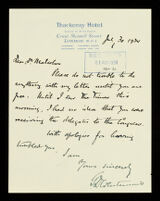 Thackeray Hotel
Great Russell Street
London, W.C.1
July 30 1930
Dear Dr Malcolm
Please do not trouble to do
anything with my letter until you
see. Until I saw the Times this
morning, I had no idea that you were
receiving the delegates to the Congress
with apologies for having
troubled you.
I am
Yours sincerely